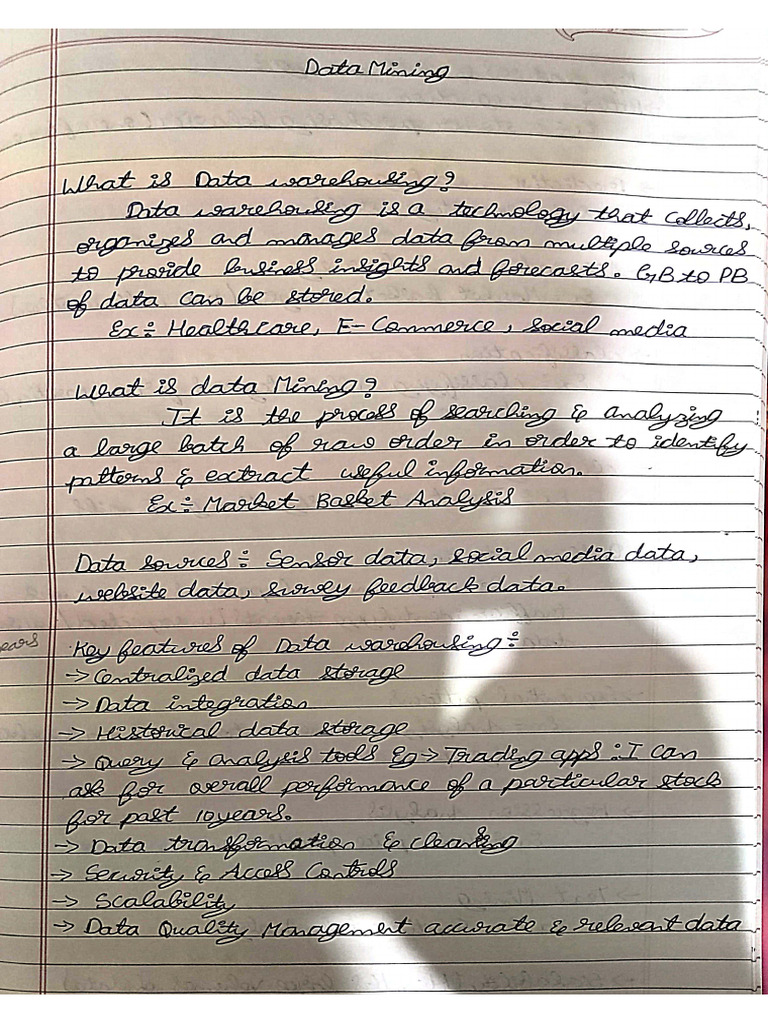 Data Mining
What is Data warehousing?
Data warehousing is a technology that collects,
organizes and manages data from multiple sources
to provide business insights and forecasts. GB to PB
of data can be stored.
Ex:- Healthcare, E-Commerce, social media
What is data Mining?
It is the process of searching & analyzing
a large batch of raw order in order to identify
patterns & extract useful information.
Ex:- Market Basket Analysis
Data sources:- Sensor data, social media data,
website data, survey feedback data.
Key features of Data warehousing:-
→ Centralized data storage
→ Data integration
→ Historical data storage
→ Query & analysis tools Eg → Trading apps : I can
ask for overall performance of a particular stock
for past 10 years.
→ Data transformation & cleansing
→ Security & Access Controls
→ Scalability
→ Data Quality Management accurate & relevant data